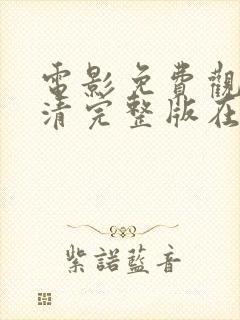 電影免費觀
清完整版在
紫諾藍音